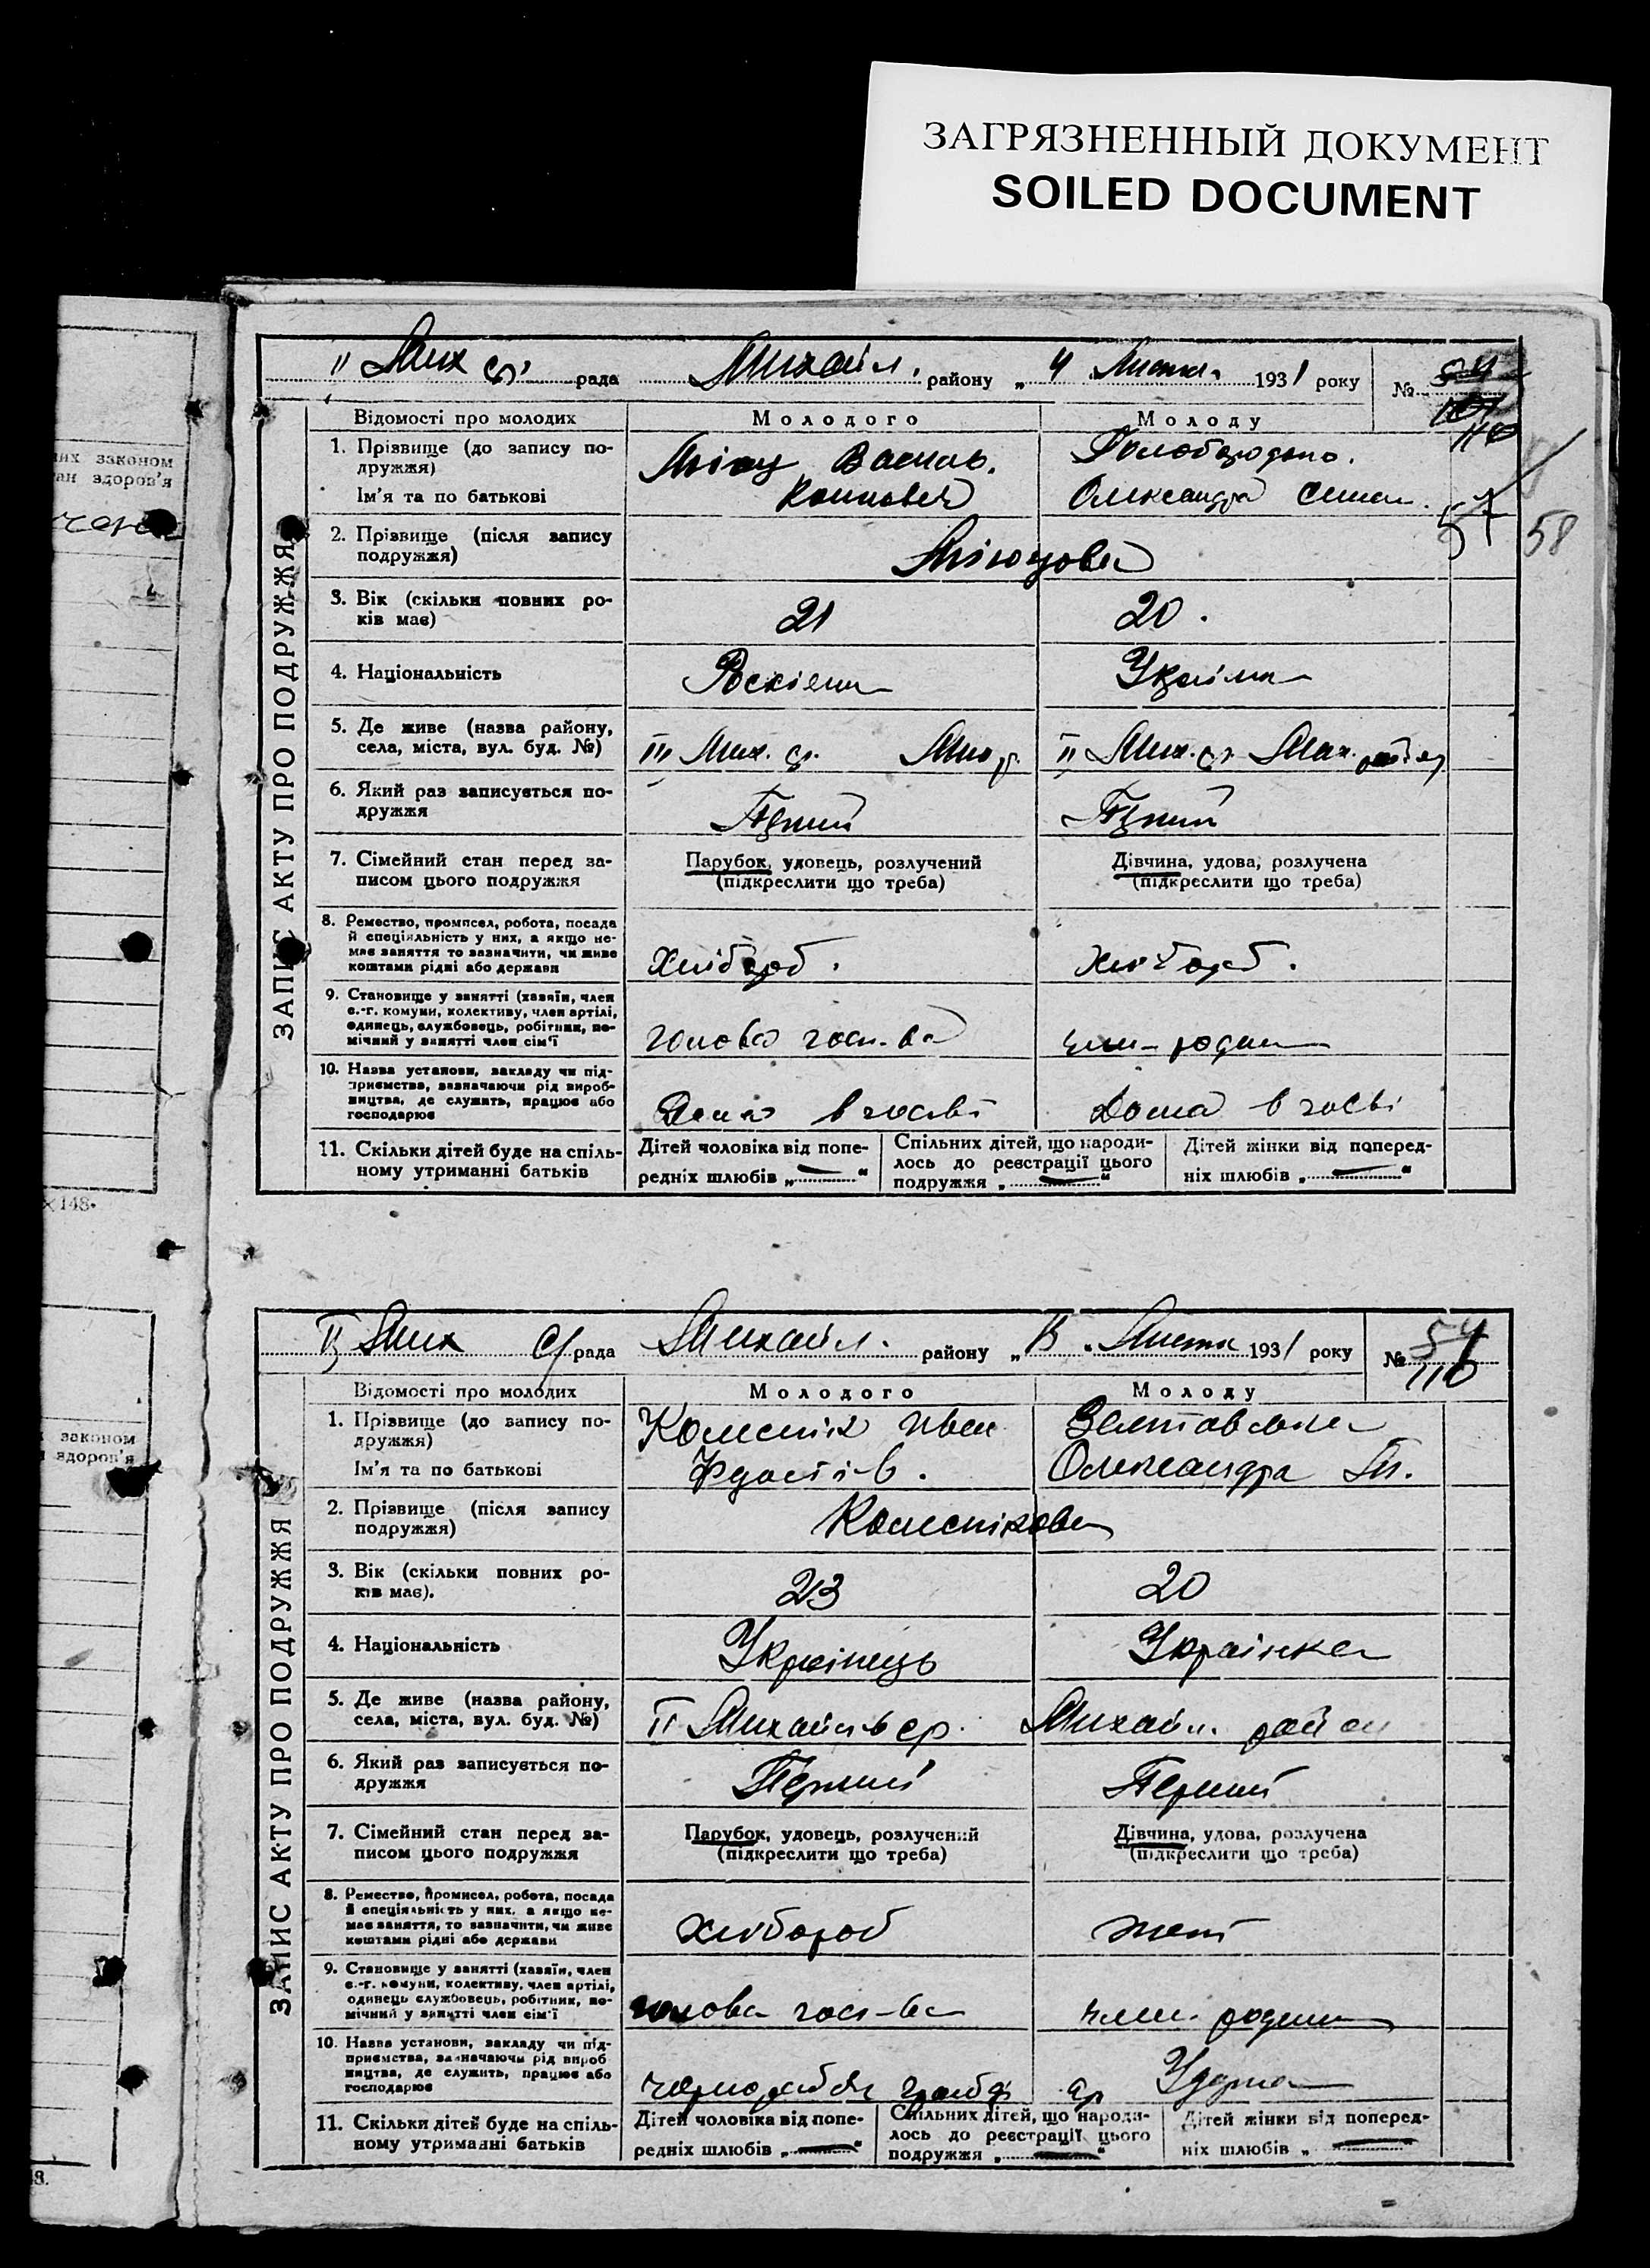 ЗАГРЯЗНЕННЫЙ ДОКУМЕНТ
SOILED DOCUMENT
них законом
ан здоров'я
×148.
законом
здоров'я
8.
ЗАПИС АКТУ ПРО ПОДРУЖЖЯ
II Мих ср. рада Михайл. району „4 Листоп. 1931 року №
54
110
57
58
Відомості про молодих Молодого Молоду
1. Прізвище (до запису по-
дружжя)
Ім'я та по батькові
Василь
Олександра Семен.
2. Прізвище (після запису
подружжя)
3. Вік (скільки повних ро-
ків має) 21 20.
4. Національність
5. Де живе (назва району,
села, міста, вул. буд. №) III Мих. ср. II Мих. ср. Мих. район
6. Який раз записується по-
дружжя Перший Перший
7. Сімейний стан перед за-
писом цього подружжя
Парубок, удовець, розлучений
(підкреслити що треба)
Дівчина, удова, розлучена
(підкреслити що треба)
8. Ремество, промисел, робота, посада
й спеціяльність у них, а якщо не-
має заняття то зазначити, чи живе
коштами рідні або держави
Хлібороб. Хлібороб.
9. Становище у занятті (хазяїн, член
с.-г. комуни, колективу, член артілі,
одинець, службовець, робітник, по-
мічний у занятті член сім'ї
голова госп-ва член родини
10. Назва установи, закладу чи під-
приємства, зазначаючи рід вироб-
ництва, де служить, працює або
господарює
Дома в госп-ві Дома в госп-ві
11. Скільки дітей буде на спіль-
ному утриманні батьків
Дітей чоловіка від попе-
редніх шлюбів „ — “
Спільних дітей, що народи-
лось до реєстрації цього
подружжя „ — “
Дітей жінки від поперед-
ніх шлюбів „ — “
ЗАПИС АКТУ ПРО ПОДРУЖЖЯ
II Мих ср рада Михайл. району Листоп 1931 року № 54
110
Відомості про молодих Молодого Молоду
1. Прізвище (до запису по-
дружжя)
Ім'я та по батькові
Колесник Иван
Олександра
2. Прізвище (після запису
подружжя) Колесникова
3. Вік (скільки повних ро-
ків має). 23 20
4. Національність Українець Українка
5. Де живе (назва району,
села, міста, вул. буд. №) II Михайлів ср. Михайл. район
6. Який раз записується по-
дружжя Перший Перший
7. Сімейний стан перед за-
писом цього подружжя
Парубок, удовець, розлучений
(підкреслити що треба)
Дівчина, удова, розлучена
(підкреслити що треба)
8. Ремество, промисел, робота, посада
й спеціяльність у них, а якщо не-
має заняття, то зазначити, чи живе
коштами рідні або держави
Хлібороб
9. Становище у занятті (хазяїн, член
с.-г. комуни, колективу, член артілі,
одинець службовець, робітник, по-
мічний у занятті член сім'ї
голова госп-ва член. родини
10. Назва установи, закладу чи під-
приємства, зазначаючи рід вироб
ництва, де служить, працює або
господарює
11. Скільки дітей буде на спіль-
ному утриманні батьків
Дітей чоловіка від попе-
редніх шлюбів „ — “
Спільних дітей, що народи-
лось до реєстрації цього
подружжя „ — “
Дітей жінки від поперед-
ніх шлюбів „ — “